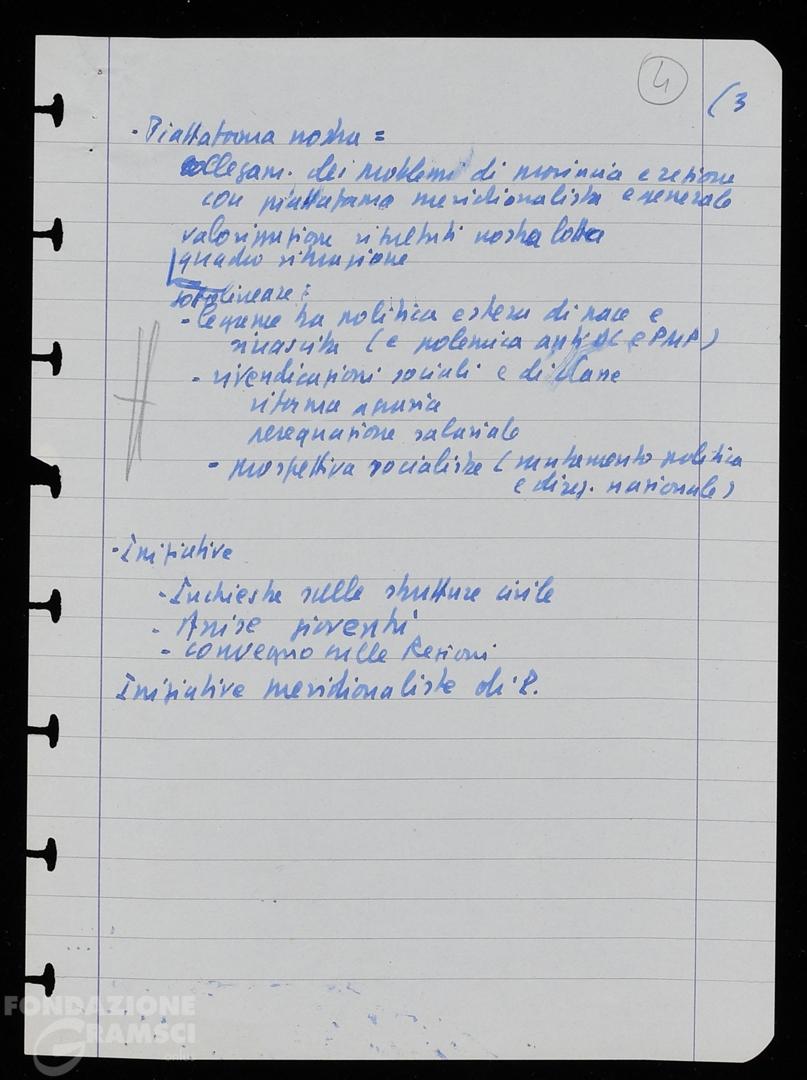 4
(3
- Piattaforma nostra =
collegam. dei problemi di provincia e regione
con piattaforma meridionalista e generale
valorizzazione risultati nostra lotta
quadro situazione
sottolineare:
- legame tra politica estera di pace e
rinascita (e polemica anti DC e PMP)
- rivendicazioni sociali e di classe
riforma agraria
perequazione salariale
- prospettiva socialista (mutamento politica
e direz. nazionale)
- Iniziative
- Inchieste sulle strutture civile
- Assise gioventù
- convegno sulle Regioni
Iniziative meridionaliste di P.
FONDAZIONE
GRAMSCI
onlus